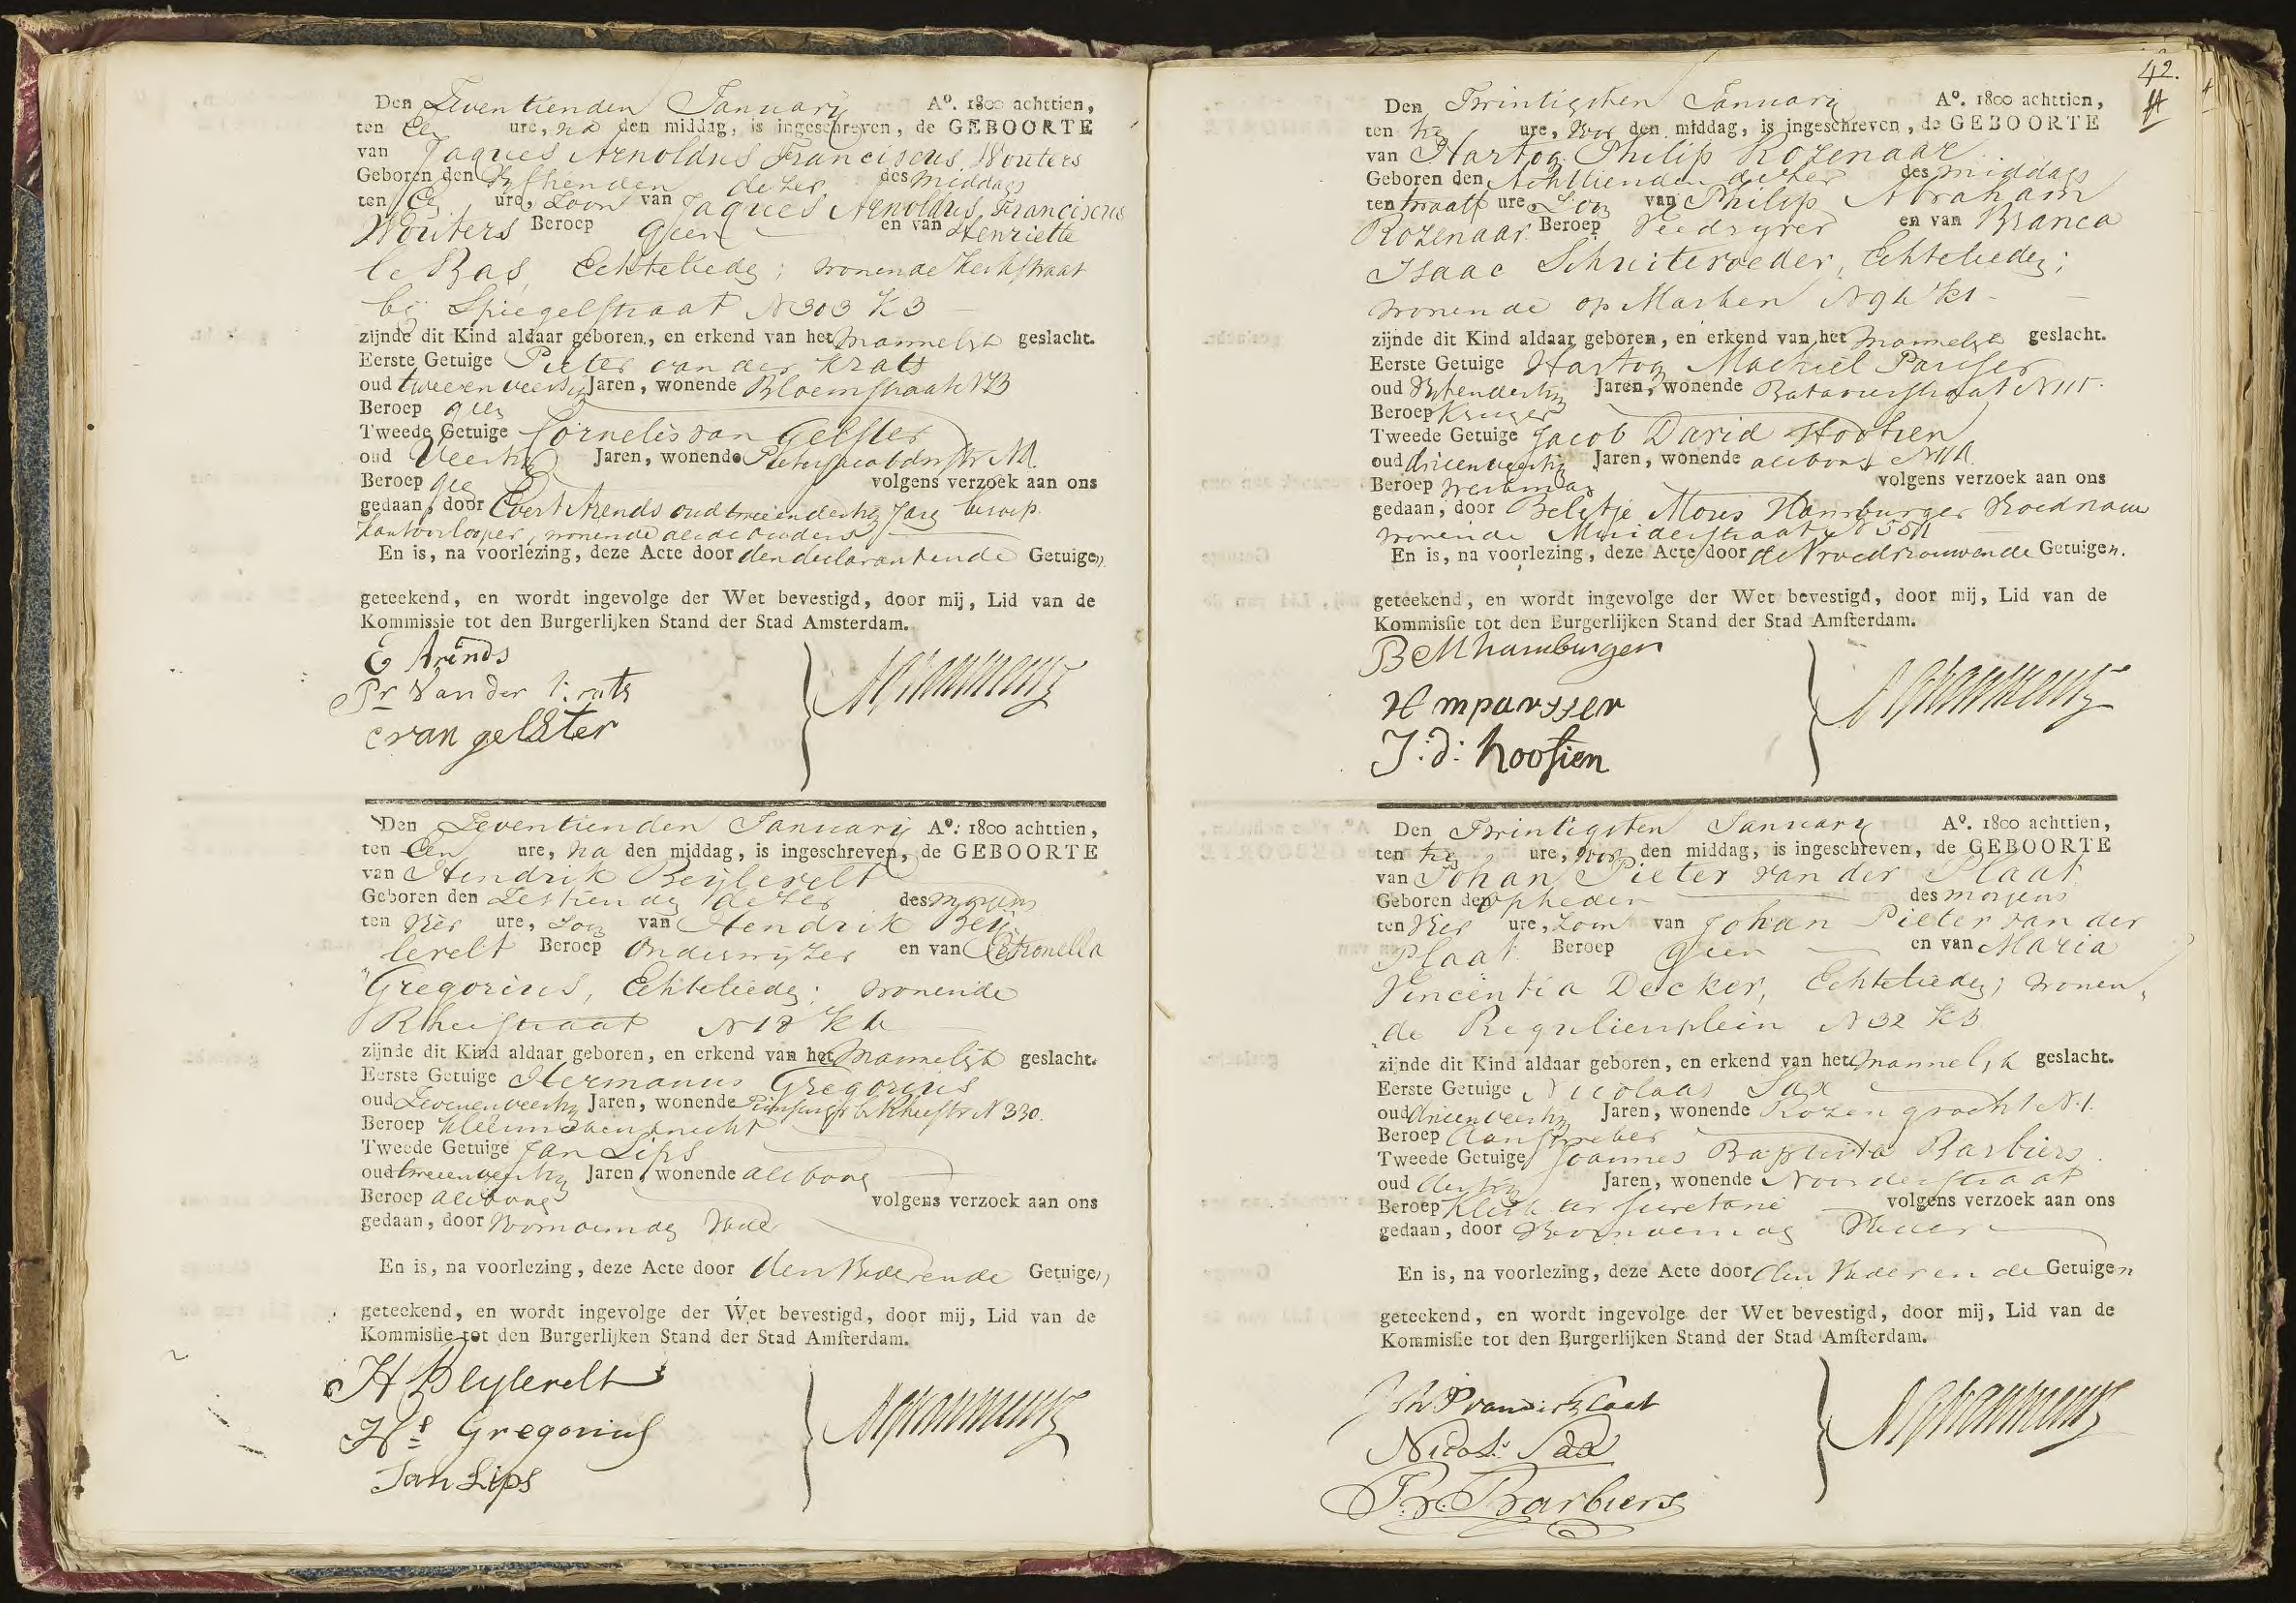 Den Zeventienden January Aº. 1800 achttien,
ten Een ure, na den middag, is ingeschreven, de GEBOORTE
van Jaques Arnoldus Franciscus Wouters
Geboren den Vyftienden dezer des middags
ten Een ure, Zoon van Jaques Arnoldus Franciscus
Wouters Beroep geen en van Henriette
le Bas, Echtelieden; wonende Kerkstraat
by Spiegelstraat N 303 K 3
zijnde dit Kind aldaar geboren, en erkend van het mannelyk geslacht.
Eerste Getuige Pieter van der Krats
oud tweeenveertig Jaren, wonende Bloemstraat
Beroep geen
Tweede Getuige Cornelis van Gelster
oud Veertig Jaren, wonende
Beroep geen volgens verzoek aan ons
gedaan, door Evert Arends oud tweeendertig Jaren beroep
kantoorlooper, wonende
En is, na voorlezing, deze Acte door den declarant en de Getuigen
geteekend, en wordt ingevolge der Wet bevestigd, door mij, Lid van de
Kommissie tot den Burgerlijken Stand der Stad Amsterdam.
E Arends
Pr Van der Krats
C van gelster
Den Zeventienden January Aº: 1800 achttien,
ten Een ure, na den middag, is ingeschreven, de GEBOORTE
van Hendrik Beijlevelt
Geboren den Zestienden dezer des morgens
ten Vier ure, Zoon van Hendrik Beij
levelt Beroep Onderwyzer en van Petronella
Gregorius, Echtelieden; wonende
straat N 18 K
zijnde dit Kind aldaar geboren, en erkend van het mannelijk geslacht.
Eerste Getuige Hermanus Gregorius
oud Zevenenveertig Jaren, wonende N 330.
Beroep kleermakersknecht
Tweede Getuige Jan Lips
oud tweeenveertig Jaren, wonende als boven
Beroep als boven volgens verzoek aan ons
gedaan, door Voornoemden Vader
En is, na voorlezing, deze Acte door den Vader en de Getuigen
geteekend, en wordt ingevolge der Wet bevestigd, door mij, Lid van de
Kommissie tot den Burgerlijken Stand der Stad Amsterdam.
H Beylevelt
Hs Gregorius
Jan Lips
42.
Den Twintigsten January Aº. 1800 achttien,
ten tien ure, voor den middag, is ingeschreven, de GEBOORTE
van Hartog Philip Rozenaar
Geboren den Achttienden dezer des middags
ten twaalf ure, Zoon van Philip Abraham
Rozenaar Beroep en van Branca
Isaac Schuiteroeder, Echtelieden;
wonende op Marken
zijnde dit Kind aldaar geboren, en erkend van het mannelyk geslacht.
Eerste Getuige Hartog Machiel Parisser
oud Jaren, wonende Batavierstraat N 115
Beroep Kruyer
Tweede Getuige Jacob David Hootien
oud drieenveertig Jaren, wonende als boven
Beroep werkman volgens verzoek aan ons
gedaan, door Beletje Moses Hamburger Vroedvrouw
wonende Muiderstraat
En is, na voorlezing, deze Acte door de Vroedvrouw en de Getuigen.
geteekend, en wordt ingevolge der Wet bevestigd, door mij, Lid van de
Kommissie tot den Burgerlijken Stand der Stad Amsterdam.
B M hamburger
H M parsser
J: d: hootien
Den Twintigsten January Aº. 1800 achttien,
ten tien ure, voor den middag, is ingeschreven, de GEBOORTE
van Johan Pieter van der Plaat
Geboren den Opheden des morgens
ten Vier ure, Zoon van Johan Pieter van der
Plaat Beroep Geen en van Maria
Vincentia Decker, Echtelieden; wonen„
de Regulierplein N 32 K 3
zijnde dit Kind aldaar geboren, en erkend van het mannelyk geslacht.
Eerste Getuige Nicolaas Sax
oud drieenveertig Jaren, wonende Rozengracht N. 1.
Beroep Aanspreker
Tweede Getuige Joannes Baptista Barbiers
oud dertig Jaren, wonende Noorderstraat
Beroep Klerk ter Secretarie volgens verzoek aan ons
gedaan, door Voornoemden Vader
En is, na voorlezing, deze Acte door den Vader en de Getuigen
geteekend, en wordt ingevolge der Wet bevestigd, door mij, Lid van de
Kommissie tot den Burgerlijken Stand der Stad Amsterdam.
Joh P van der Plaat
Nicol: Sax
Barbiers